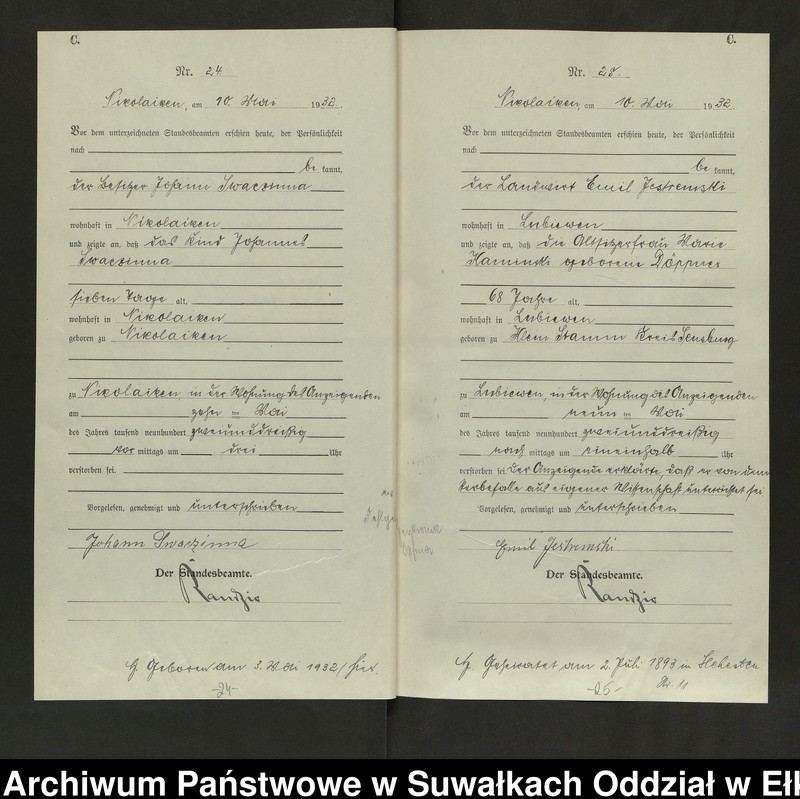 C.
Nr. 24
Nikolaiken, am 10. Mai 1932.
Vor dem unterzeichneten Standesbeamten erschien heute, der Persönlichkeit
nach
be kannt,
der Besitzer Johann Swaczinna
wohnhaft in Nikolaiken
und zeigte an, daß das Kind Johannes
Swaczinna
sieben Tage alt,
wohnhaft in Nikolaiken
geboren zu Nikolaiken
zu Nikolaiken in der Wohnung des Anzeigenden
am zehn ten Mai
des Jahres tausend neunhundert zweiunddreißig
vor mittags um drei Uhr
verstorben sei.
Vorgelesen, genehmigt und unterschrieben
Johann Swaczinna
Der Standesbeamte.
Kandzir
Geboren am 3. Mai 1932 / hier.
-24-
C.
Nr. 25.
Nikolaiken, am 10. Mai 1932.
Vor dem unterzeichneten Standesbeamten erschien heute, der Persönlichkeit
nach
be kannt,
der Landwirt Emil Jestremski
wohnhaft in Lubiewen
und zeigte an, daß die Altsitzerfrau Marie
Kaminski geborene Döppner
68 Jahre alt,
wohnhaft in Lubiewen
geboren zu Klein Stamm Kreis Sensburg
zu Lubiewen, in der Wohnung des Anzeigenden
am neun ten Mai
des Jahres tausend neunhundert zweiunddreißig
nach mittags um eineinhalb Uhr
verstorben sei. Der Anzeigende erklärte, daß er von dem
Sterbefalle aus eigener Wissenschaft unterrichtet sei
Vorgelesen, genehmigt und unterschrieben
Emil Jestremski
Der Standesbeamte.
Kandzir
Geheiratet am 2. Juli 1893 in
Nr. 11
-25-
Archiwum Państwowe w Suwałkach Oddział w Eł